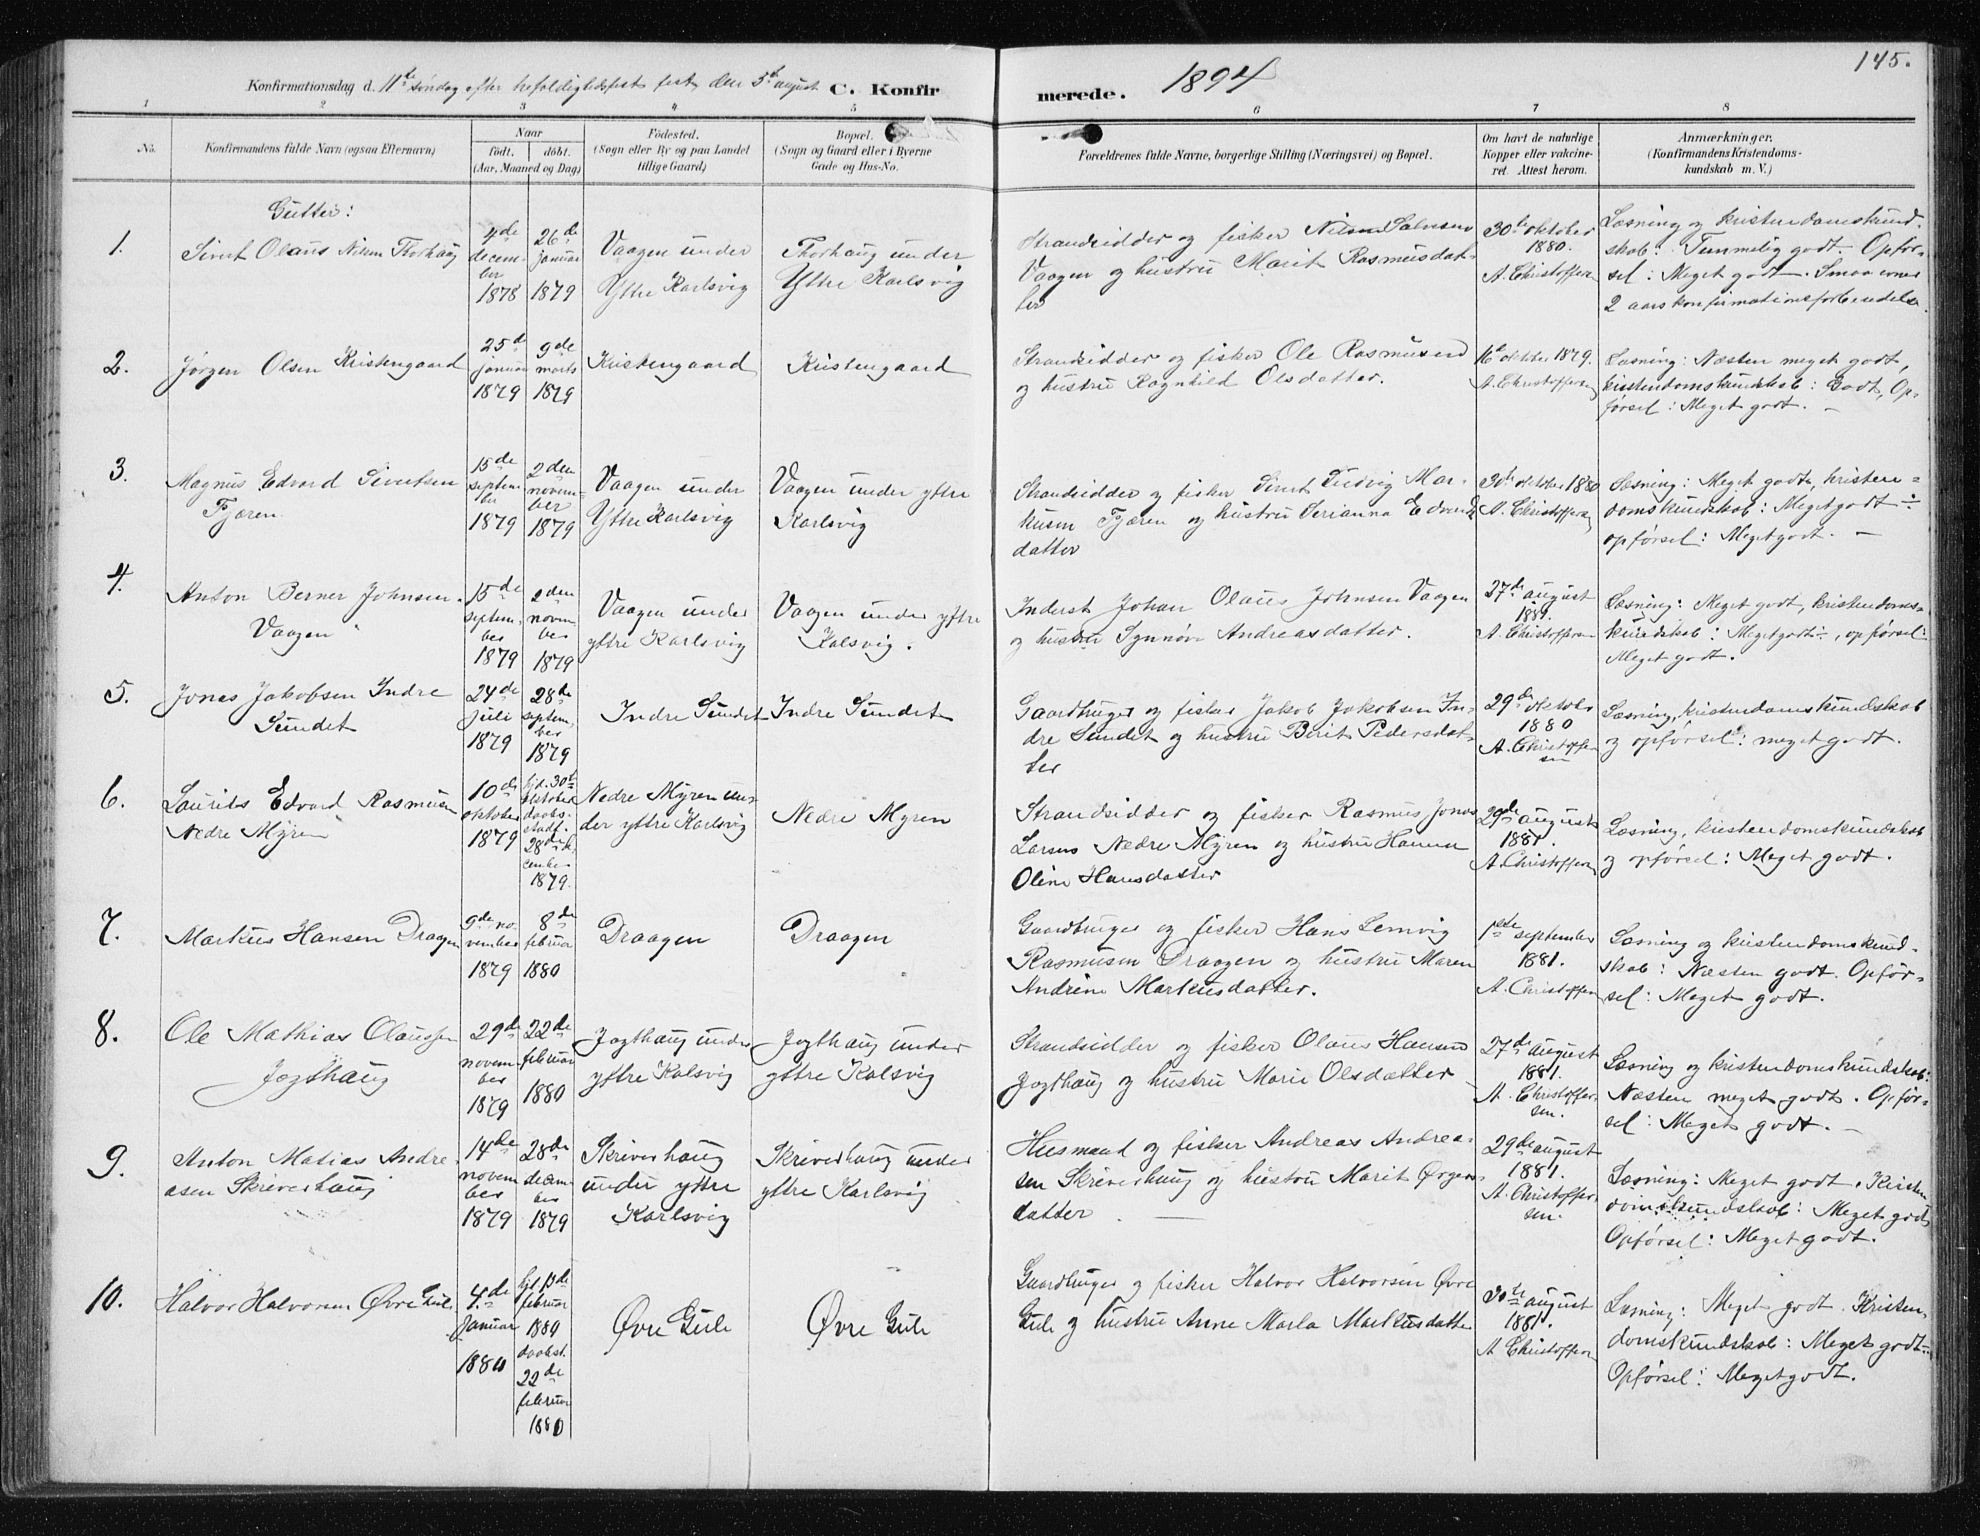 145.
Konfirmationsdag d. 11te søndag efter trefoldighedsfest den 5te august C. Konfir
merede. 1894
1 2 3 4 5 6 7 8
No.
Konfirmandens fulde Navn (ogsaa Efternavn)
Naar
födt. döbt.
(Aar, Maaned og Dag)
Födested.
(Sogn eller By og paa Landet
tillige Gaard)
Bopæl.
(Sogn og Gaard eller i Byerne
Gade og Hus-No.
Forældrenes fulde Navne, borgerlige Stilling (Næringsvei) og Bopæl.
Om havt de naturlige
Kopper eller vakcine-
ret. Attest herom.
Anmærkninger.
(Konfirmandens Kristendoms-
kundskab m. V.)
Gutter:
1.
Sivert Olaus Nilsen Thorhaug
4de
decem-
ber
1878
26de
januar
1879
Vaagen under
Yttre Karlsvig
Thorhaug under
Yttre Karlsvig
Strandsidder og fisker Nils Salvesen
Vaagen og hustru Marit Rasmusdat-
ter
30te oktober
1880.
A. Christoffersen
Læsning og kristendomskund-
skab: Temmelig godt. Opfør-
sel: Meget godt. Smaa evner
2 aars konfirmationsforberedelse.
2.
Jørgen Olsen Kristengaard
25de
januar
1879
9de
marts
1879
Kristengaard
Kristengaard
Strandsidder og fisker Ole Rasmusen
og hustru Ragnhild Olsdatter.
16de oktober 1879.
A. Christoffersen
Læsning: Næsten meget godt,
kristendomskundskab: Godt, Op-
førsel: Meget godt. –
3.
Magnus Edvard Sivertsen
Fjæren
15de
septem-
ber
1879
2den
novem-
ber
1879
Vaagen under
Yttre Karlsvig
Vaagen under yttre
Karlsvig
Strandsidder og fisker Sivert Ludvig Mar-
kusen Fjæren og hustru Serianna Edvards
datter
30te oktober 1880
A. Christoffersen
Læsning: Meget godt, kristen-
domskundskab: Meget godt ÷
opførsel: Meget godt. –
4.
Anton Berner Johnsen
Vaagen
15de
septem-
ber
1879
2den
novem-
ber
1879
Vaagen under
yttre Karlsvig
Vaagen under yttre
Kalsvig.
Inderst Johan Olaus Johnsen Vaagen
og hustru Synnøv Andreasdatter.
27de august
1881.
A. Christoffersen
Læsning: Meget godt, kristendoms-
kundskab: Meget godt ÷, opførsel:
Meget godt.
5.
Jonas Jakobsen Indre
Sundet
24de
juli
1879
28de
septem-
ber
1879
Indre Sundet
Indre Sundet
Gaardbruger og fisker Jakob Jakobsen In-
dre Sundet og hustru Berit Pedersdat-
ter
29de oktober
1880
A. Christoffer-
sen
Læsning, kristendomskundskab
og opførsel: meget godt.
6.
Laurits Edvard Rasmusen
Nedre Myren
10de
oktober
1879
hjd. 30te
oktober
daabs-
stadf.
28de de-
cember
1879.
Nedre Myren un-
der yttre Karlsvig
Nedre Myren
Strandsidder og fisker Rasmus Jonas
Larsens Nedre Myren og hustru Hanna
Oline Hansdatter
29de august
1881.
A. Christoffersen
Læsning, kristendomskundskab
og opførsel: Meget godt.
7.
Markus Hansen Draagen
9de no-
vember
1879
8de
februar
1880
Draagen
Draagen
Gaardbruger og fisker Hans Lemvig
Rasmusen Draagen og hustru Maren
Andrine Markusdatter.
1ste september
1881.
A. Christoffersen
Læsning og kristendomskund-
skab: Næsten godt. Opfør-
sel: Meget godt.
8.
Ole Mathias Olaussen
Jogthaug
29de
novem-
ber
1879
22de
februar
1880
Jogthaug under
yttre Kalsvig
Jogthaug under
yttre Kalsvig
Strandsidder og fisker Olaus Hansen
Jogthaug og hustru Marie Olsdatter
27de august
1881.
A. Christoffer-
sen.
Læsning og kristendomskundskab:
Næsten meget godt. Opfør-
sel: Meget godt. –
9.
Anton Matias Andre-
asen Skriverhaug
14de
novem
ber
1879
28de
decem-
ber
1879
Skriverhaug
under yttre
Karlsvig
Skriverhaug under
yttre Karlsvig
Husmand og fisker Andreas Andrea-
sen Skriverhaug og hustru Marit Ørgens-
datter.
29de august
1881.
A. Christoffer-
sen.
Læsning: Meget godt. Kristen
domskundskab: Meget godt
Opførsel: Meget godt.
10.
Halvor Halvorsen Øvre Gule
4de
januar
1880
hjd. 13de
februar
1880
daabst.
22de
februar
1880
Øvre Gule
Øvre Gule
Gaardbruger og fisker Halvor Halvorsen Øvre
Gule og hustru Anne Marta Markusdatter
30te august
1881.
A Christoffersen
Læsning: Meget godt. Kristen-
domskundskab: Meget godt.
Opførsel: Meget godt.